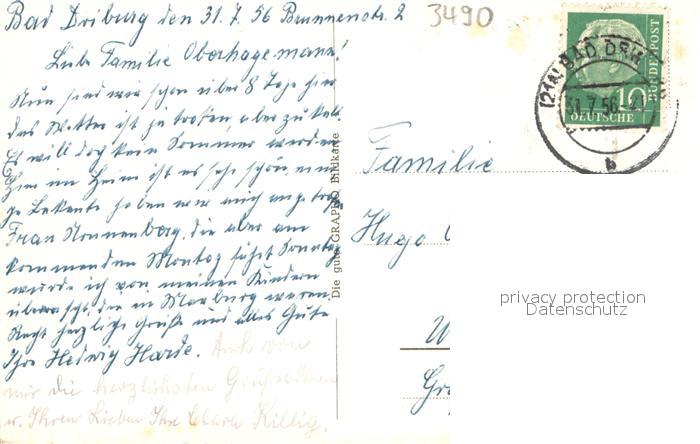 Bad Driburg den 31.7.56 Brunnenstr. 2
3490
Liebe Familie Oberhagemann!
Nun sind wir schon über 8 Tage hier
das Wetter ist ja trocken, aber zu kalt.
Es will doch kein Sommer werden
Hier im Heim ist es sehr schön, eini-
ge Bekannte haben wir auch angetroffen
Frau Nonnenberg, die aber am
kommenden Montag fährt. Sonntag
wurde ich von meinen Kindern
überrascht, die in Marburg waren.
Recht herzliche Grüße und alles Gute
Ihre Hedwig Harde. Auch von
mir die herzlichsten Grüße Ihnen
u. Ihren Lieben Ihre Clara Killig.
Die gute GRAPHO Bildkarte
(21a) BAD DRIB
31.7.56.-21
b
10
DEUTSCHE
BUNDESPOST
Familie
Hugo
W
Gr
privacy protection
Datenschutz